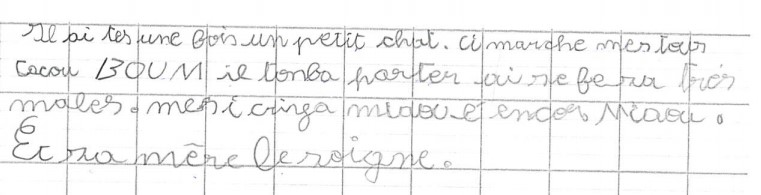 Il bi tes une fois un petit chat. ci marche mes tous
cacou BOUM il tonba parter ai se fe sa très
males. mesi cringa midou é encor Miaou.
Et sa mère le soigne.